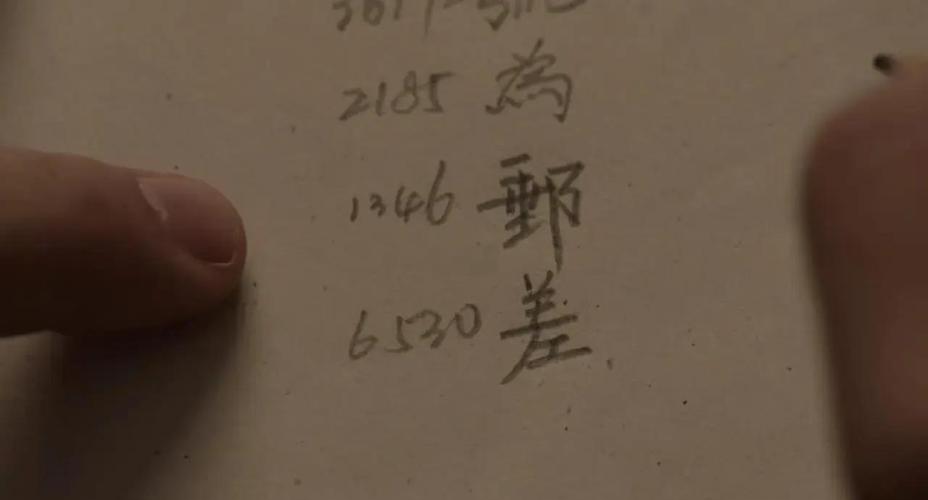 2185 為
1346 郵
6530 差